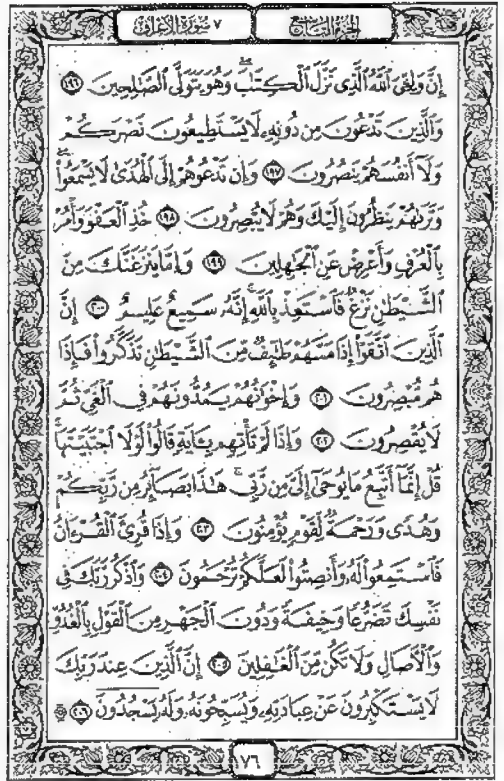 الجزء التاسع
٧ سورة الأعراف
إِنَّ وَلِـِّۧيَ ٱللَّهُ ٱلَّذِي نَزَّلَ ٱلْكِتَٰبَ وَهُوَ يَتَوَلَّى ٱلصَّٰلِحِينَ ١٩٦
وَٱلَّذِينَ تَدْعُونَ مِن دُونِهِۦ لَا يَسْتَطِيعُونَ نَصْرَكُمْ
وَلَآ أَنفُسَهُمْ يَنصُرُونَ ١٩٧ وَإِن تَدْعُوهُمْ إِلَى ٱلْهُدَىٰ لَا يَسْمَعُوا۟
وَتَرَىٰهُمْ يَنظُرُونَ إِلَيْكَ وَهُمْ لَا يُبْصِرُونَ ١٩٨ خُذِ ٱلْعَفْوَ وَأْمُرْ
بِٱلْعُرْفِ وَأَعْرِضْ عَنِ ٱلْجَٰهِلِينَ ١٩٩ وَإِمَّا يَنزَغَنَّكَ مِنَ
ٱلشَّيْطَٰنِ نَزْغٌ فَٱسْتَعِذْ بِٱللَّهِ إِنَّهُۥ سَمِيعٌ عَلِيمٌ ٢٠٠ إِنَّ
ٱلَّذِينَ ٱتَّقَوْا۟ إِذَا مَسَّهُمْ طَٰٓئِفٌ مِّنَ ٱلشَّيْطَٰنِ تَذَكَّرُوا۟ فَإِذَا
هُم مُّبْصِرُونَ ٢٠١ وَإِخْوَٰنُهُمْ يَمُدُّونَهُمْ فِى ٱلْغَىِّ ثُمَّ
لَا يُقْصِرُونَ ٢٠٢ وَإِذَا لَمْ تَأْتِهِم بِـَٔايَةٍ قَالُوا۟ لَوْلَا ٱجْتَبَيْتَهَا
قُلْ إِنَّمَآ أَتَّبِعُ مَا يُوحَىٰٓ إِلَىَّ مِن رَّبِّى هَٰذَا بَصَآئِرُ مِن رَّبِّكُمْ
وَهُدًى وَرَحْمَةٌ لِّقَوْمٍ يُؤْمِنُونَ ٢٠٣ وَإِذَا قُرِئَ ٱلْقُرْءَانُ
فَٱسْتَمِعُوا۟ لَهُۥ وَأَنصِتُوا۟ لَعَلَّكُمْ تُرْحَمُونَ ٢٠٤ وَٱذْكُر رَّبَّكَ فِى
نَفْسِكَ تَضَرُّعًا وَخِيفَةً وَدُونَ ٱلْجَهْرِ مِنَ ٱلْقَوْلِ بِٱلْغُدُوِّ
وَٱلْءَاصَالِ وَلَا تَكُن مِّنَ ٱلْغَٰفِلِينَ ٢٠٥ إِنَّ ٱلَّذِينَ عِندَ رَبِّكَ
لَا يَسْتَكْبِرُونَ عَنْ عِبَادَتِهِۦ وَيُسَبِّحُونَهُۥ وَلَهُۥ يَسْجُدُونَ ۩ ٢٠٦
١٧٦